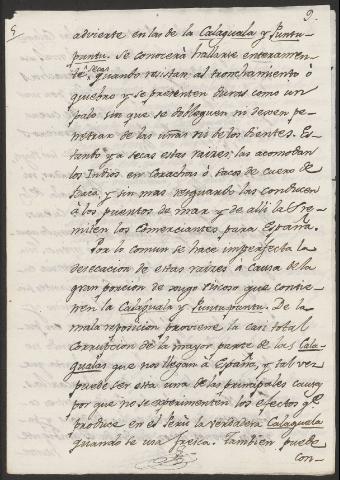 9.
advierte en las de la Calaguala y Puntu-
puntu. se conocerá hallarse enteramen-
te secas quando resistan al tronchamiento ô
quiebro y se presenten duras como un
palo sin que se dobleguen ni dexen pe-
netrar de las uñas ni de los dientes. Es-
tando ya secas estas raices, las acomodan
los Indios en Corachas ô sacos de cuero de
Baca, y sin mas resguardo las conducen
â los puertos de mar y de alli la[s] re-
miten los comerciantes para España.
Por lo comun se hace imperfecta la
desecacion de estas raices â causa de la
gran porcion de xugo viscoso que contie-
nen la Calaguala y Puntupuntu. De la
mala reposicion proviene la casi total
corrupcion de la mayor parte de las Cala-
gualas que nos llegan â España, y tal vez
puede ser esta una de las principales causas
por que no se experimenten los efectos qe.
produce en el Perù la verdadera Calaguala
quando se usa fresca. Tambien puede
con-